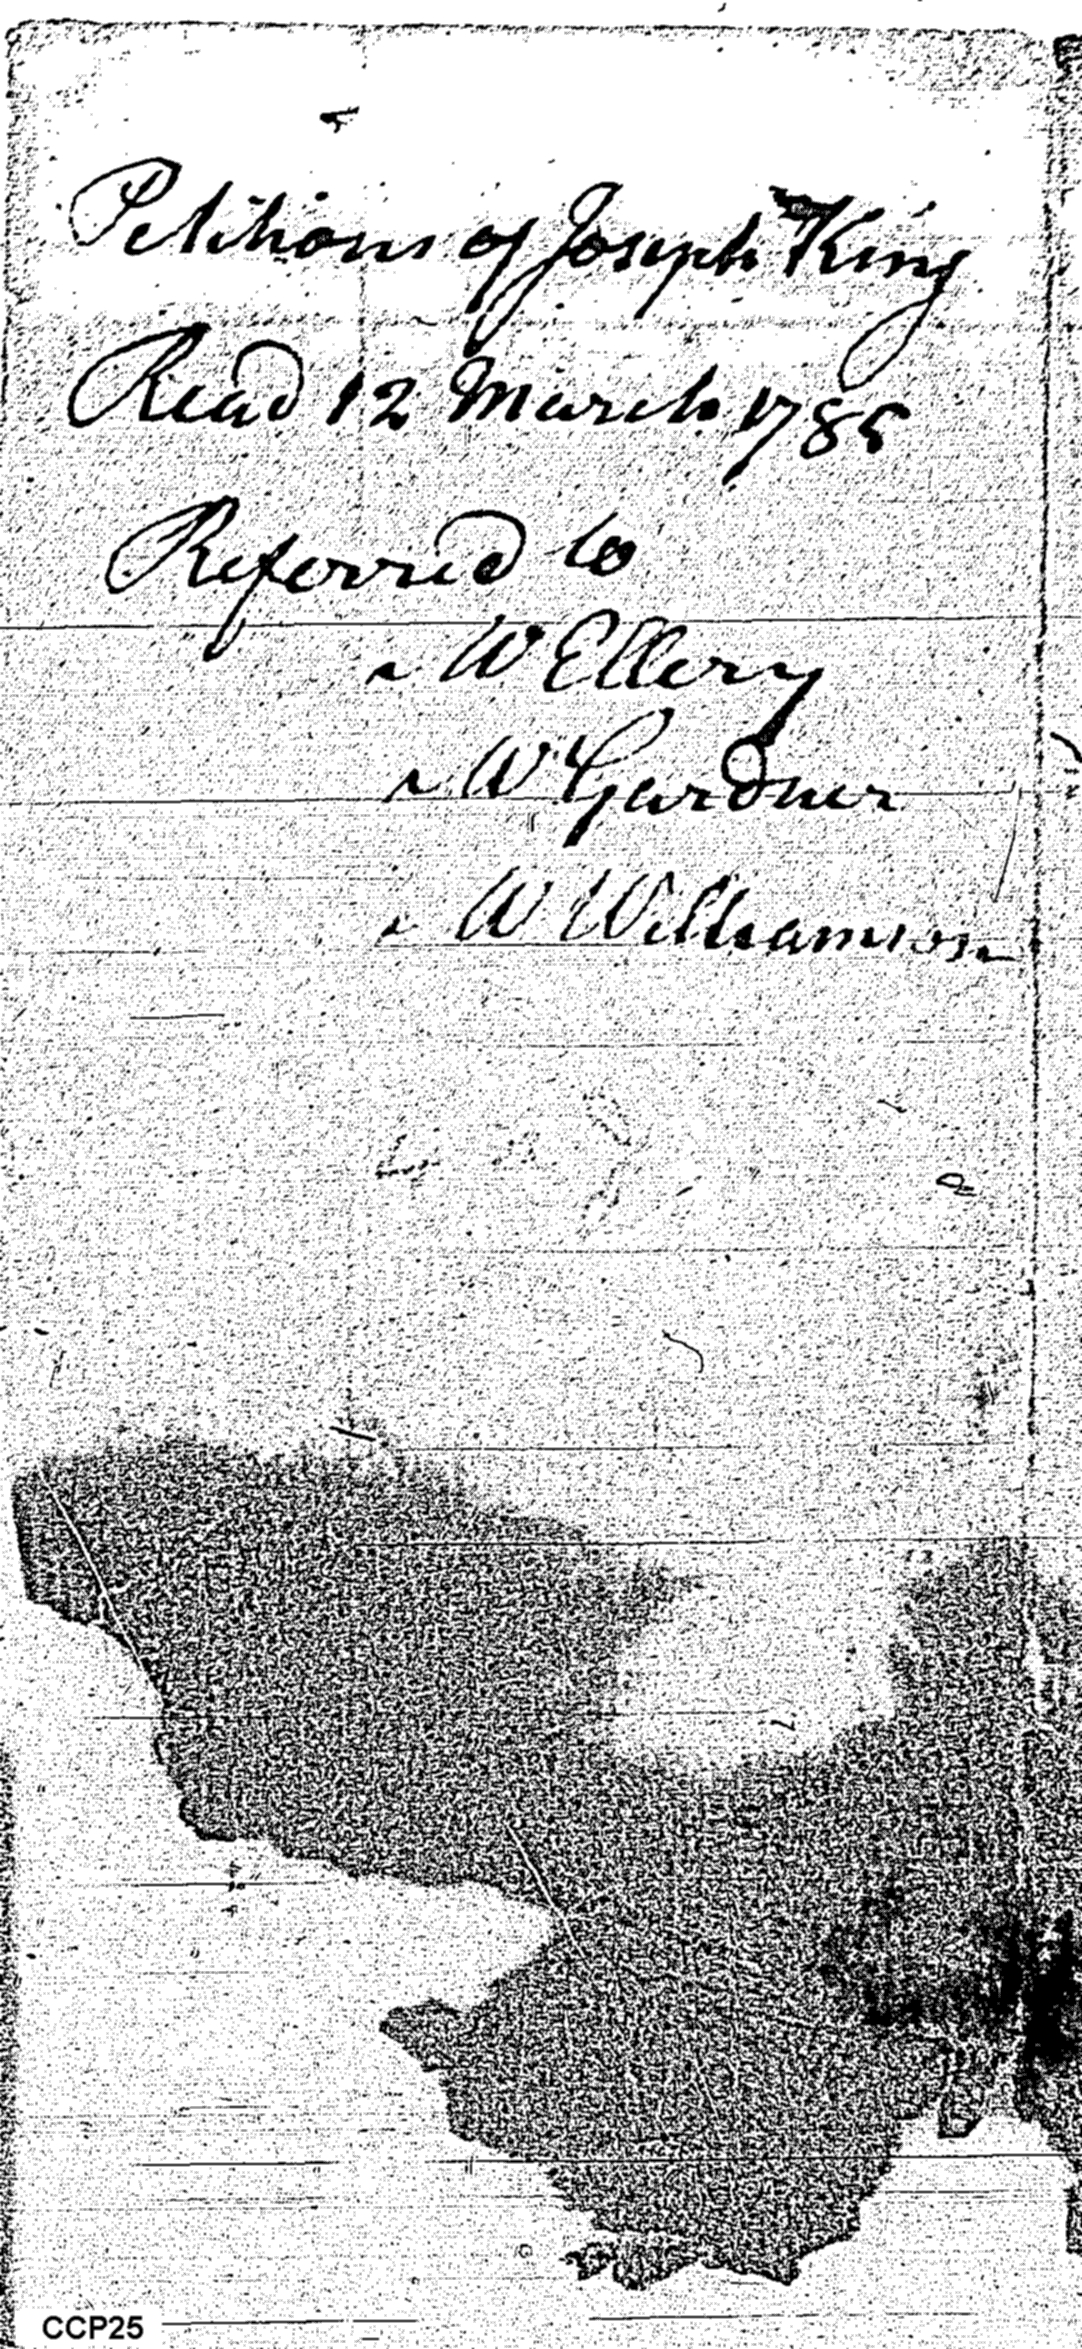 Petitions of Joseph King
Read 12 March 1785
Referred to
Mr Ellery
Mr Gardner
Mr Williamson
CCP25